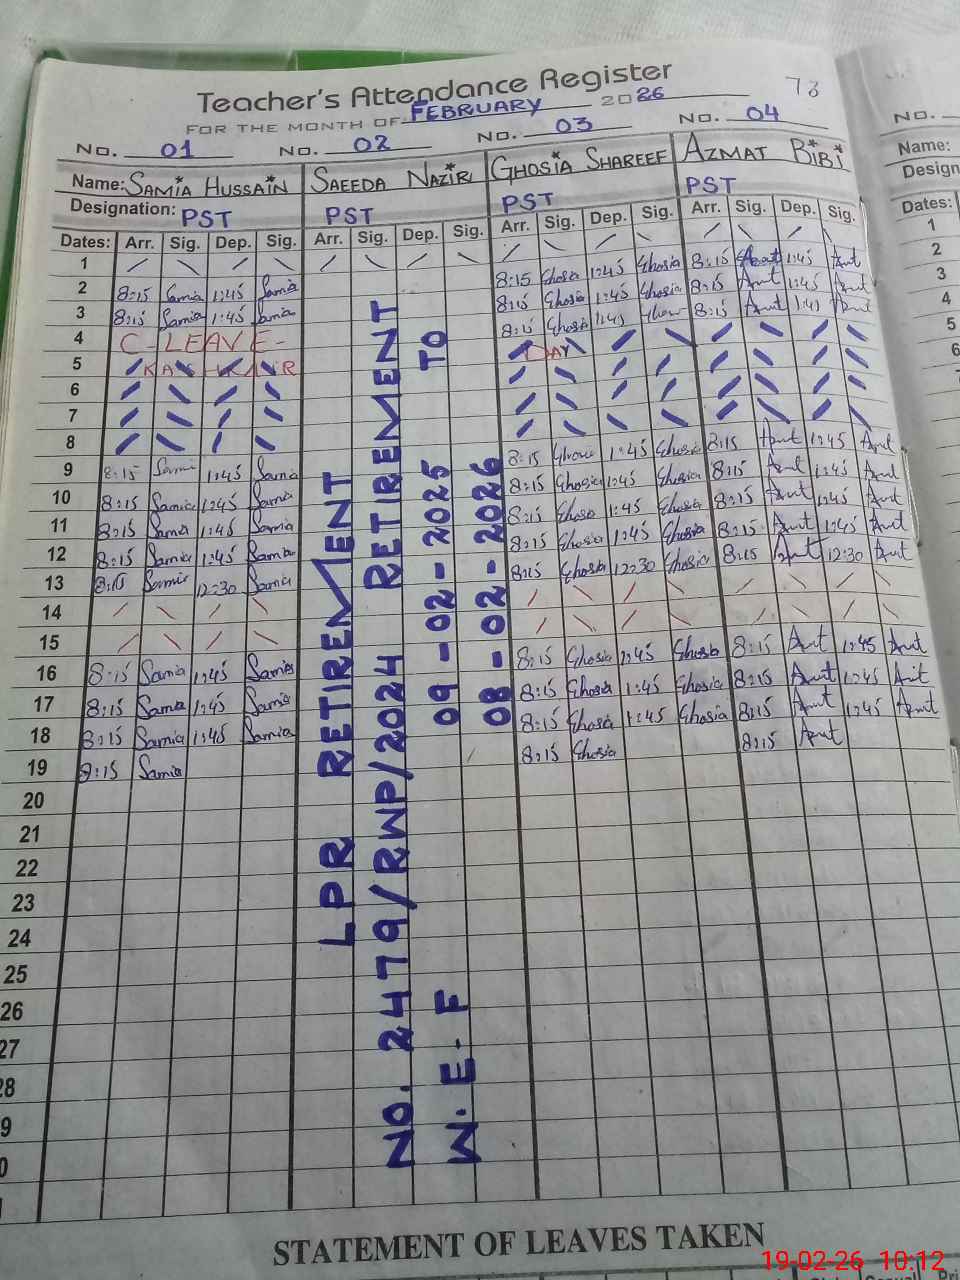 Teacher's Attendance Register
78
FOR THE MONTH OF FEBRUARY 2026
No. 01 No. 02 No. 03 No. 04
No.
Name: SAMIA HUSSAIN SAEEDA NAZIR GHOSIA SHAREEF AZMAT BIBI
Name:
Designation: PST PST PST PST
Design
Dates: Arr. Sig. Dep. Sig. Arr. Sig. Dep. Sig. Arr. Sig. Dep. Sig. Arr. Sig. Dep. Sig.
Dates:
1
2 8:15 Samia 1:45 Samia 8:15 Ghosia 1:45 Ghosia 8:15 1:45
3 8:15 Samia 1:45 Samia 8:15 Ghosia 1:45 Ghosia 8:15 1:45
4 C-LEAVE- 8:15 Ghosia 1:45 8:15 1:45
5 KASHMIR DAY
6
7
8
9 8:15 Samia 1:45 Samia 8:15 1:45 Ghosia 8:15 1:45
10 8:15 Samia 1:45 Samia 8:15 Ghosia 1:45 Ghosia 8:15 1:45
11 8:15 Samia 1:45 Samia 8:15 Ghosia 1:45 Ghosia 8:15 1:45
12 8:15 Samia 1:45 Samia 8:15 Ghosia 1:45 Ghosia 8:15 1:45
13 8:15 Samia 12:30 Samia 8:15 Ghosia 12:30 Ghosia 8:15 12:30
14
15
16 8:15 Samia 1:45 Samia 8:15 Ghosia 1:45 Ghosia 8:15 1:45
17 8:15 Samia 1:45 Samia 8:15 Ghosia 1:45 Ghosia 8:15 1:45
18 8:15 Samia 1:45 Samia 8:15 Ghosia 1:45 Ghosia 8:15 1:45
19 8:15 Samia 8:15 Ghosia 8:15
20
21
22
23
24
25
26
27
28
9
0
LPR RETIREMENT
NO. 2479/RWP/2024 RETIREMENT
W.E.F 09-02-2025 TO
08-02-2026
1
2
3
4
5
6
7
8
STATEMENT OF LEAVES TAKEN
19-02-26 10:12